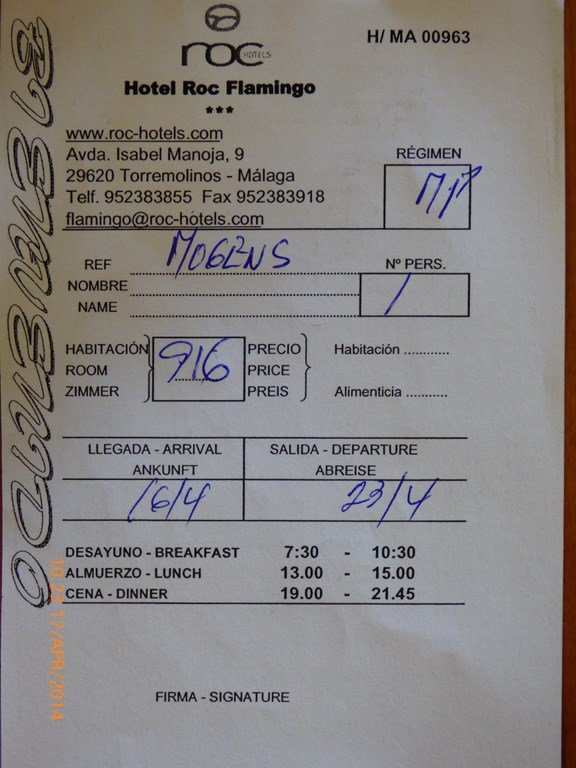 roc HOTELS
H/ MA 00963
Hotel Roc Flamingo
***
www.roc-hotels.com
Avda. Isabel Manoja, 9
29620 Torremolinos - Málaga
Telf. 952383855 Fax 952383918
flamingo@roc-hotels.com
RÉGIMEN
MP
REF MOGENS
NOMBRE
NAME
Nº PERS.
1
HABITACIÓN
ROOM
ZIMMER
916
PRECIO
PRICE
PREIS
Habitación ............
Alimenticia ...........
LLEGADA - ARRIVAL
ANKUNFT
SALIDA - DEPARTURE
ABREISE
16/4
23/4
DESAYUNO - BREAKFAST 7:30 - 10:30
ALMUERZO - LUNCH 13.00 - 15.00
CENA - DINNER 19.00 - 21.45
FIRMA - SIGNATURE